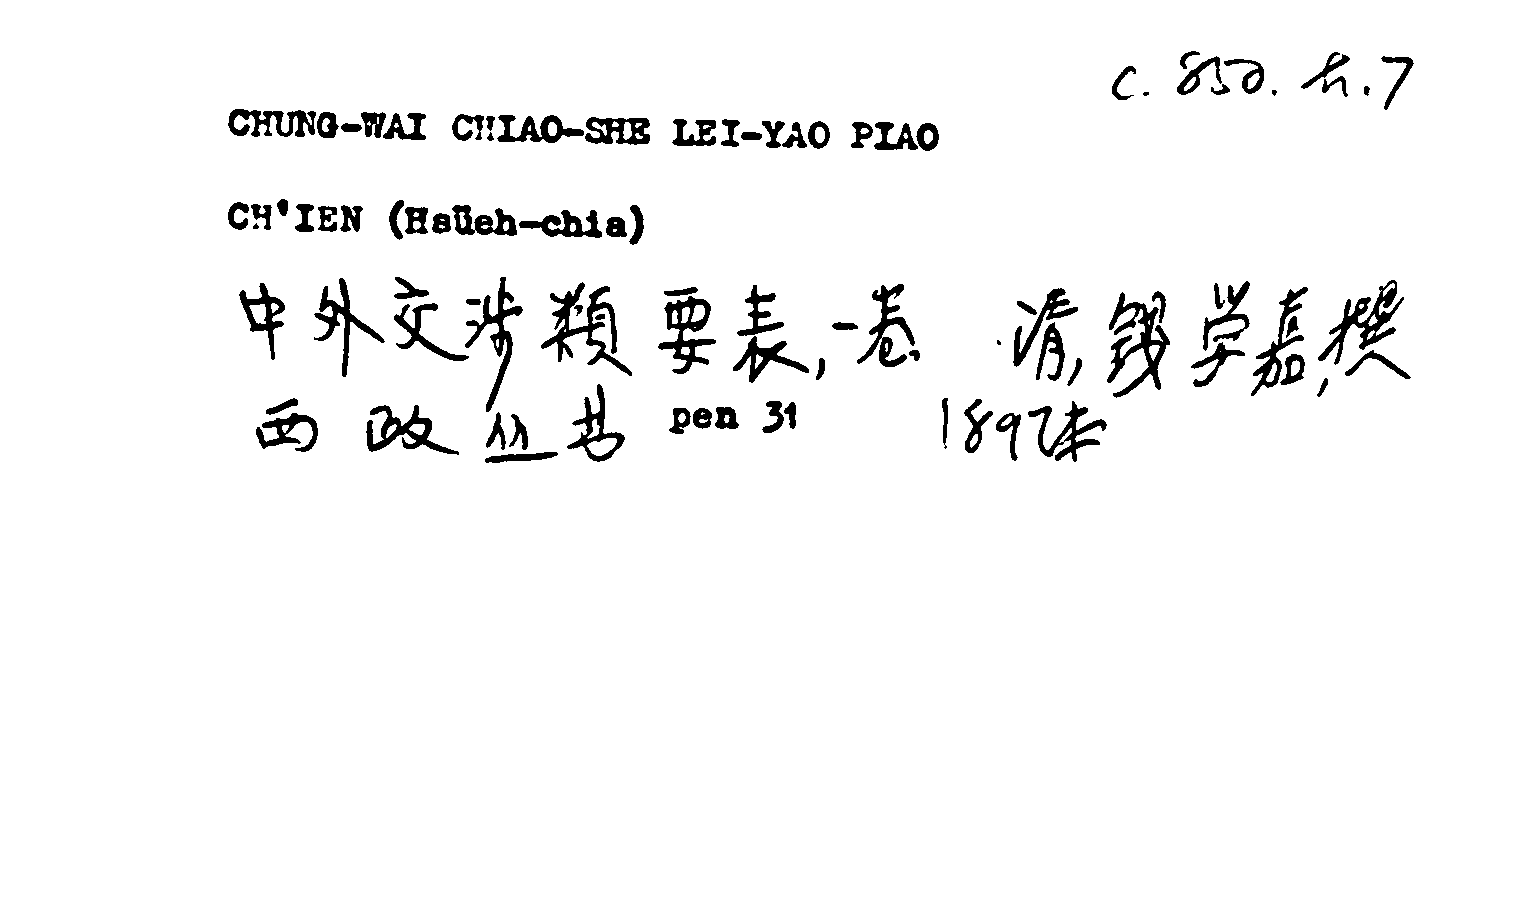 C. 850. h. 7
CHUNG-WAI CHIAO-SHE LEI-YAO PIAO
CH'IEN (Hsüeh-chia)
中外交涉類要表,一卷 清,錢学嘉,撰
西政丛书 pen 31 1897本